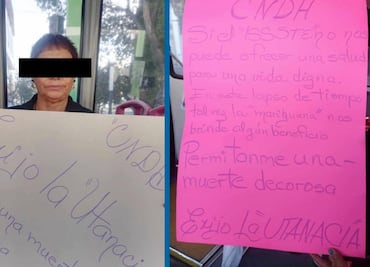 "CNDH
Exijo la "Utanaci
una muert
CNDH
Si el "ISSSTE no nos
puede ofrecer una salud
para una vida digna.
En este lapso de tiempo
tal vez la "marihuana" nos
brinde algún beneficio
Permitanme una-
muerte decorosa
Exijo La "UTANACIÁ